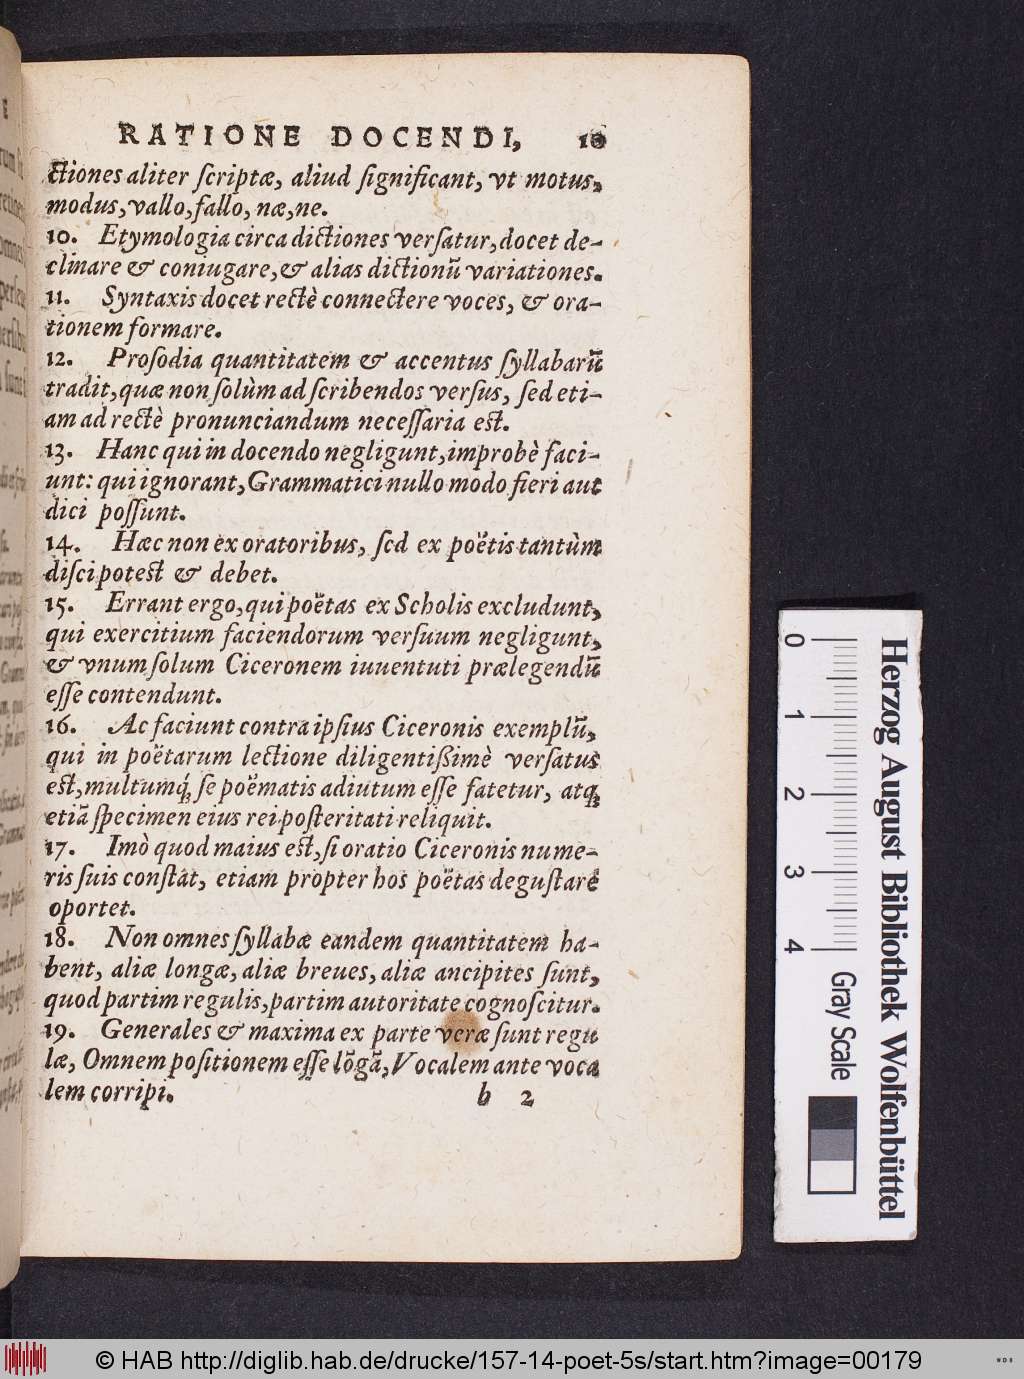 RATIONE DOCENDI, 10
ctiones aliter ſcriptæ, aliud ſignificant, vt motus,
modus, vallo, fallo, næ, ne.
10. Etymologia circa dictiones verſatur, docet de-
clinare & coniugare, & alias dictionũ variationes.
11. Syntaxis docet rectè connectere voces, & ora-
tionem formare.
12. Proſodia quantitatem & accentus ſyllabarũ
tradit, quæ non ſolùm ad ſcribendos verſus, ſed eti-
am ad rectè pronunciandum neceſſaria est.
13. Hanc qui in docendo negligunt, improbè faci-
unt: qui ignorant, Grammatici nullo modo fieri aut
dici poſſunt.
14. Hæc non ex oratoribus, ſed ex poëtis tantùm
diſci potest & debet.
15. Errant ergo, qui poëtas ex Scholis excludunt,
qui exercitium faciendorum verſuum negligunt,
& vnum ſolum Ciceronem iuuentuti prælegendũ
eſſe contendunt.
16. Ac faciunt contra ipſius Ciceronis exemplũ,
qui in poëtarum lectione diligentißimè verſatus
est, multumq́; ſe poëmatis adiutum eſſe fatetur, atq;
etiã ſpecimen eius rei poſteritati reliquit.
17. Imò quod maius est, ſi oratio Ciceronis nume-
ris ſuis conſtat, etiam propter hos poëtas deguſtare
oportet.
18. Non omnes ſyllabæ eandem quantitatem ha-
bent, aliæ longæ, aliæ breues, aliæ ancipites ſunt,
quod partim regulis, partim autoritate cognoſcitur.
19. Generales & maxima ex parte veræ ſunt regu
læ, Omnem poſitionem eſſe lõgã, Vocalem ante voca
lem corripi.
b 2
Herzog August Bibliothek Wolfenbüttel
0 1 2 3 4
Gray Scale
© HAB http://diglib.hab.de/drucke/157-14-poet-5s/start.htm?image=00179
WDB